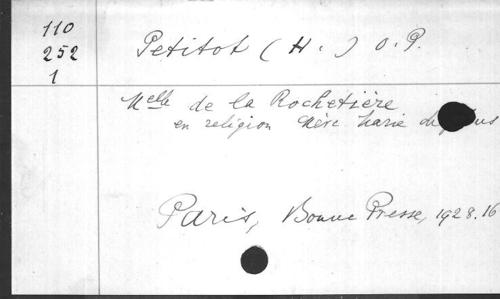 110
252
1
Petitot (H.) O.P.
Melle de la Rochetière
en religion Mère Marie de
Paris, Bonne Presse, 1928. 16